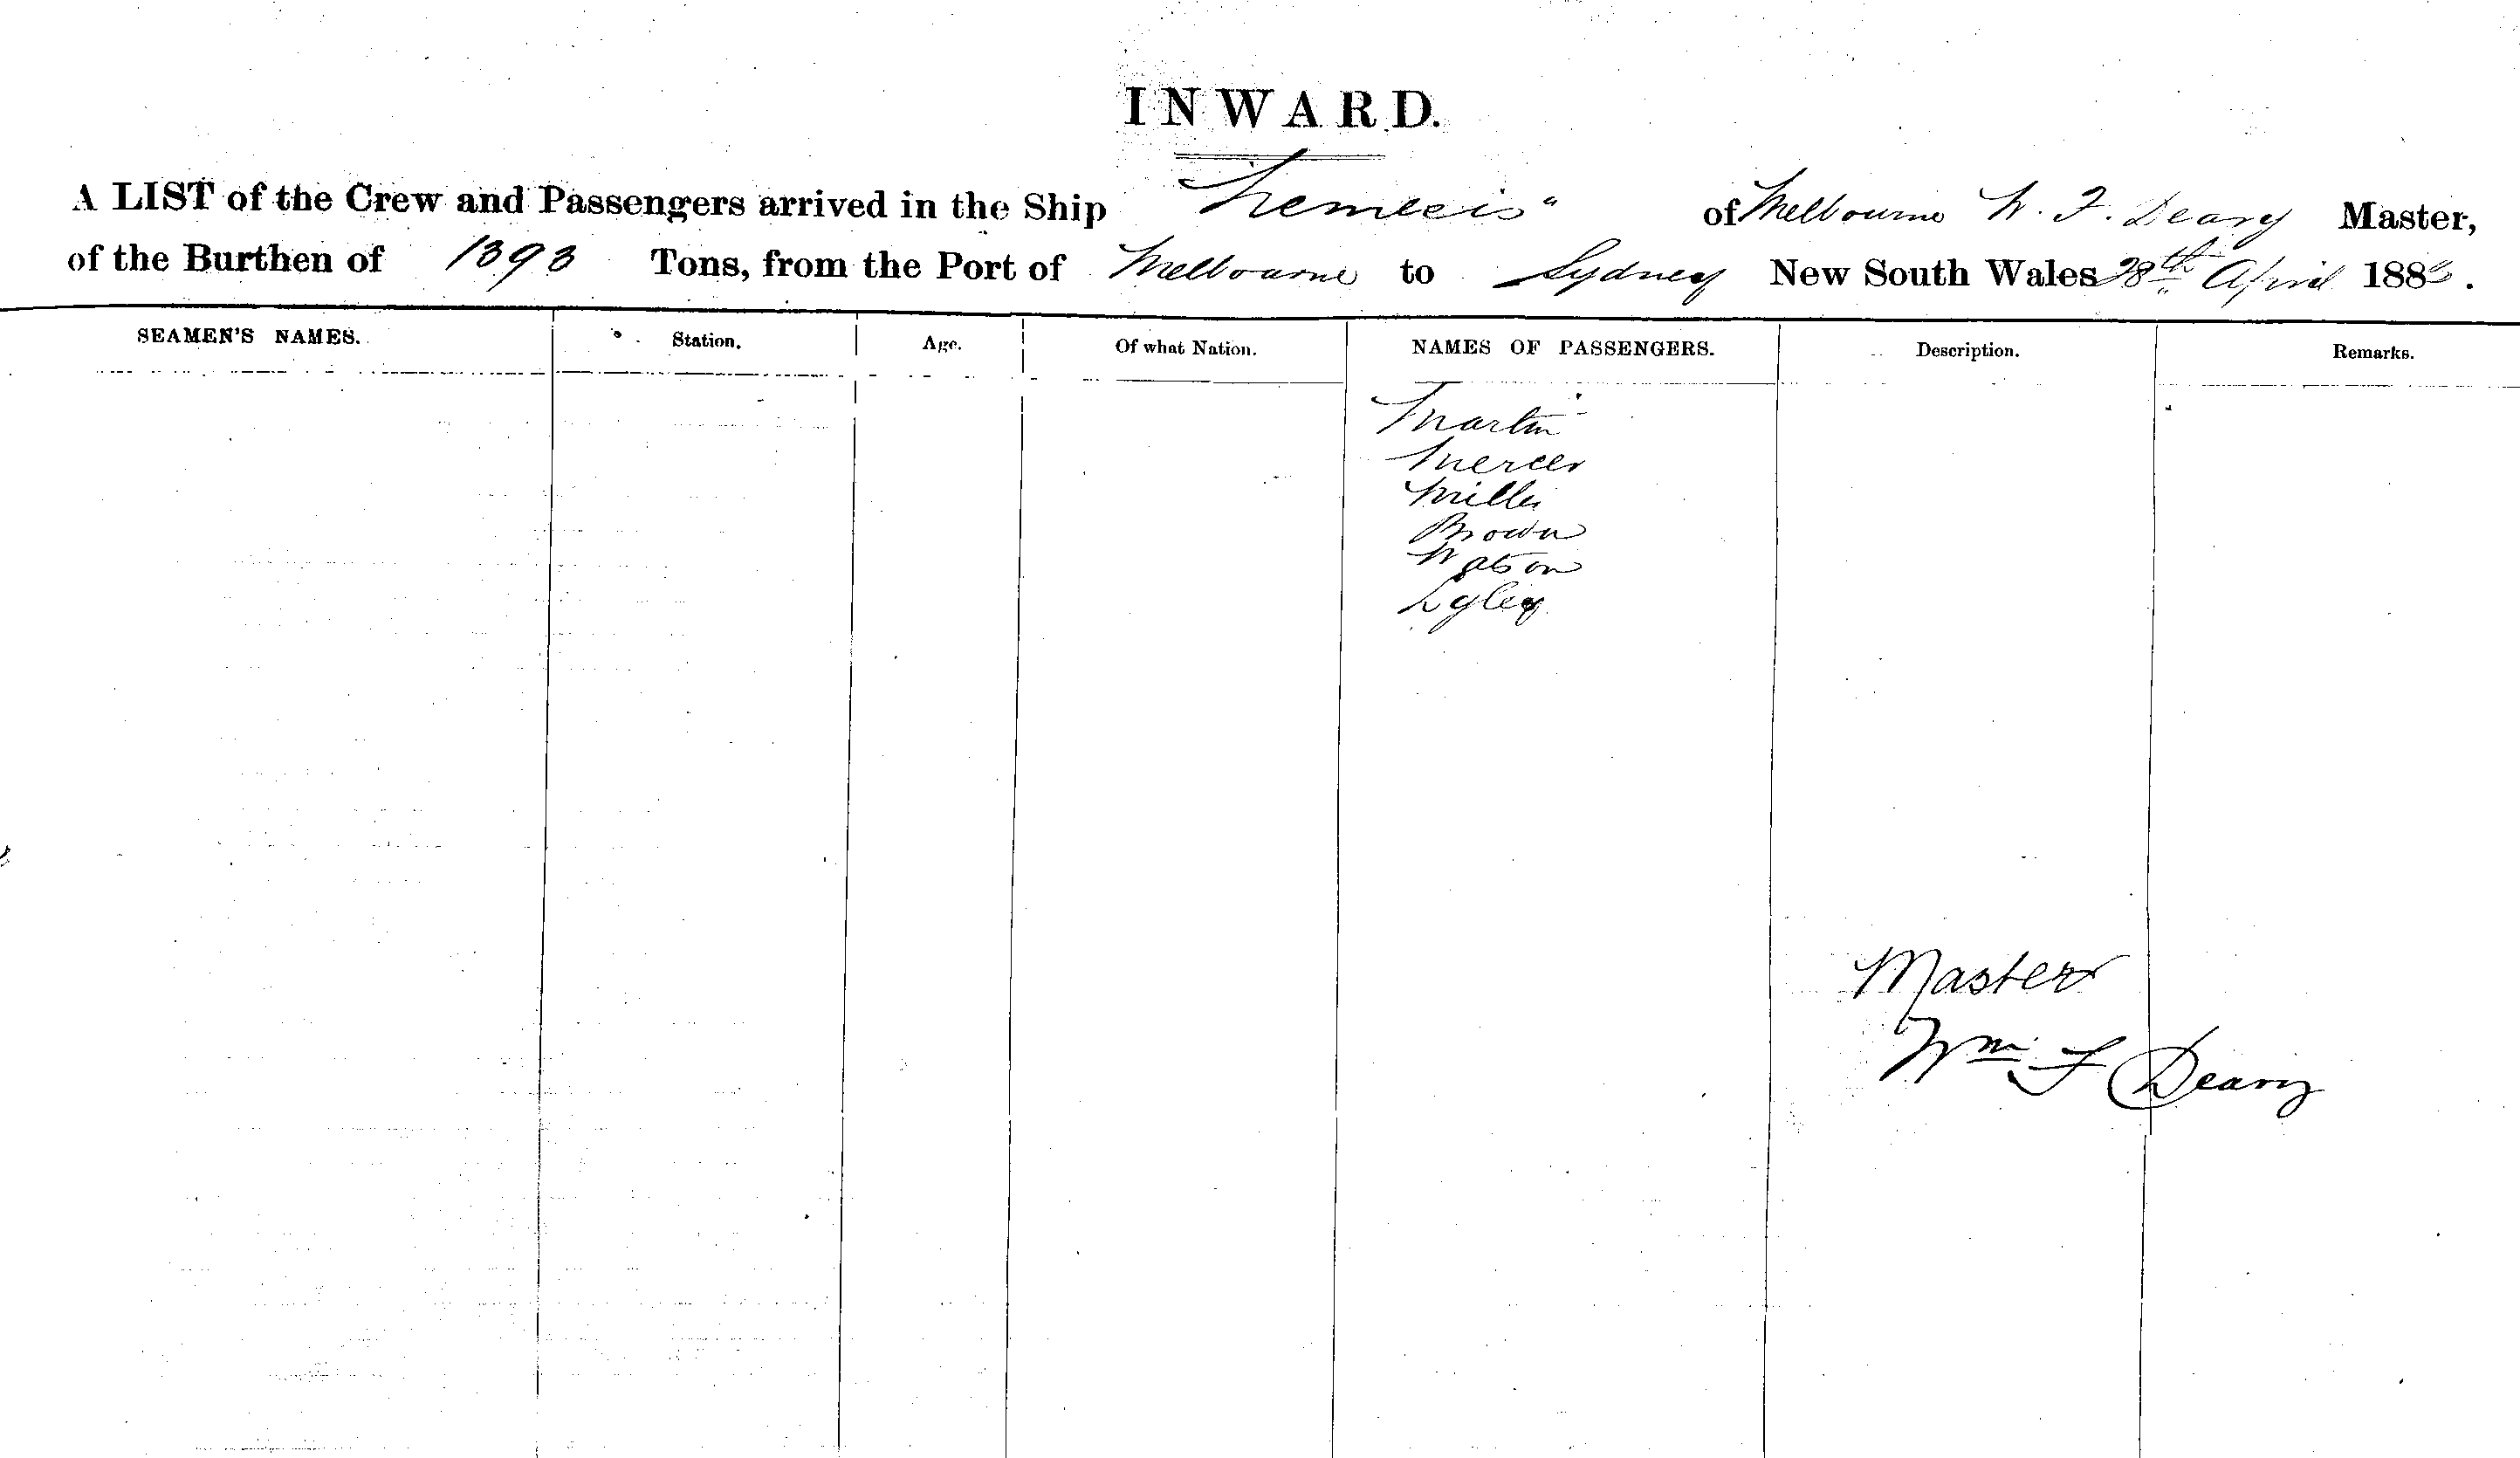 INWARD.
A LIST of the Crew and Passengers arrived in the Ship "Nemesis" of Melbourne W. F. Deary Master,
of the Burthen of 1393 Tons, from the Port of Melbourne to Sydney New South Wales 28th April 188 .
SEAMEN'S NAMES. Station. Age. Of what Nation. NAMES OF PASSENGERS. Description. Remarks.
Martin
Mercer
Miller
Brown
Watson
Master
Wm F Deary